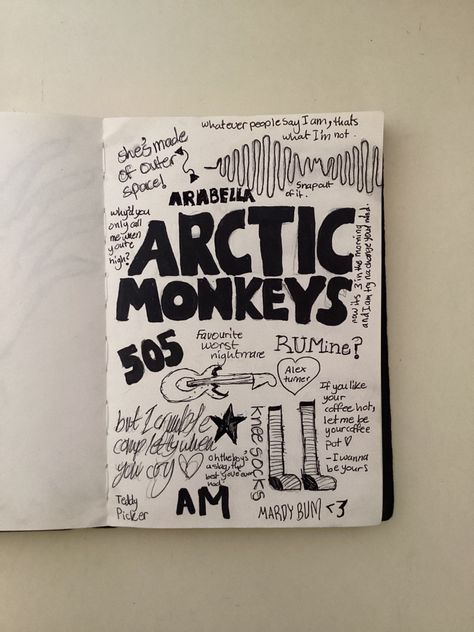 whatever people say I am, thats
what I'm not.
she's made
of outer
space!
Snap out
of it.
ARABELLA
why'd you
only call
me when
you're
high?
ARCTIC
MONKEYS
now its 3 in the morning
and I am tryna change your mind.
505
Favourite
worst
nightmare
R U Mine?
Alex
turner
If you like
your
coffee hot,
let me be
your coffee
pot ♡
- I wanna
be yours
but I crumble
completely when
you cry ♡
KNEE SOCKS
oh the boy's
a slag, the
best you ever
had
Teddy
Picker
AM
MARDY BUM <3